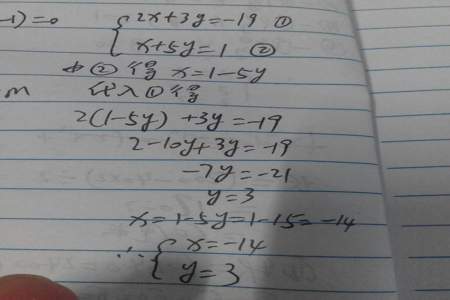 -1)=0
{2x+3y=-19 ①
x+5y=1 ②
由②得 x=1-5y
m 代入①得
2(1-5y)+3y=-19
2-10y+3y=-19
-7y=-21
y=3
x=1-5y=1-15=-14
∴{x=-14
y=3